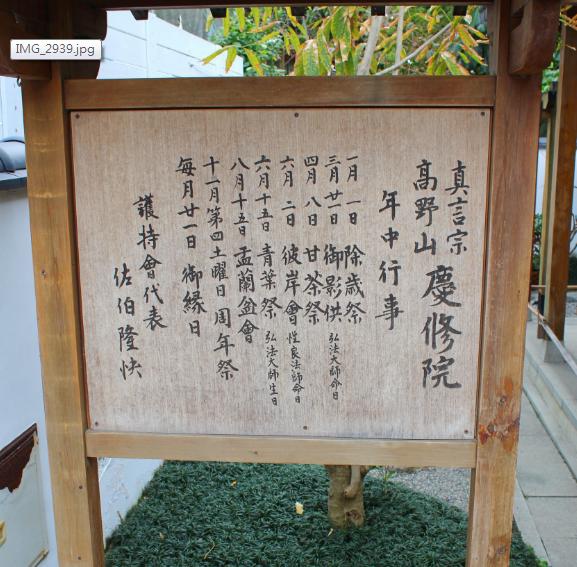 IMG_2939.jpg
真言宗
高野山 慶修院
年中行事
一月一日 除歳祭
三月廿一日 御影供 弘法大師命日
四月八日 甘茶祭
六月二日 彼岸會 性良法師命日
六月十五日 青葉祭 弘法大師生日
八月十五日 盂蘭盆會
十一月第四土曜日 周年祭
每月廿一日 御縁日
護持會代表
佐伯隆快